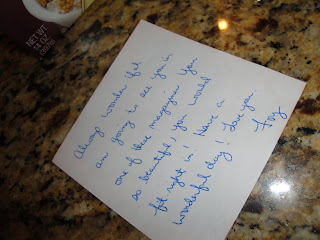 NET WT
14 OZ
Always wonder if I
am going to see you in
one of these magazines. You
so beautiful, you would
fit right in! Have a
wonderful day! Love you.